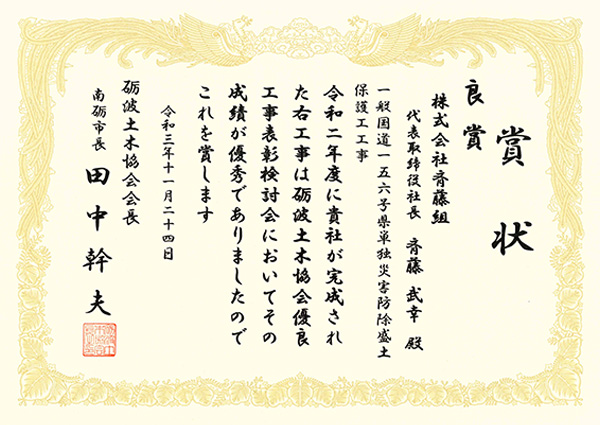 賞状
良賞
株式会社斉藤組
代表取締役社長 斉藤武幸殿
一般国道一五六号県単独災害防除盛土
保護工工事
令和二年度に貴社が完成され
た右工事は砺波土木協会優良
工事表彰検討会においてその
成績が優秀でありましたので
これを賞します
令和三年十一月二十四日
砺波土木協会会長
南砺市長 田中幹夫